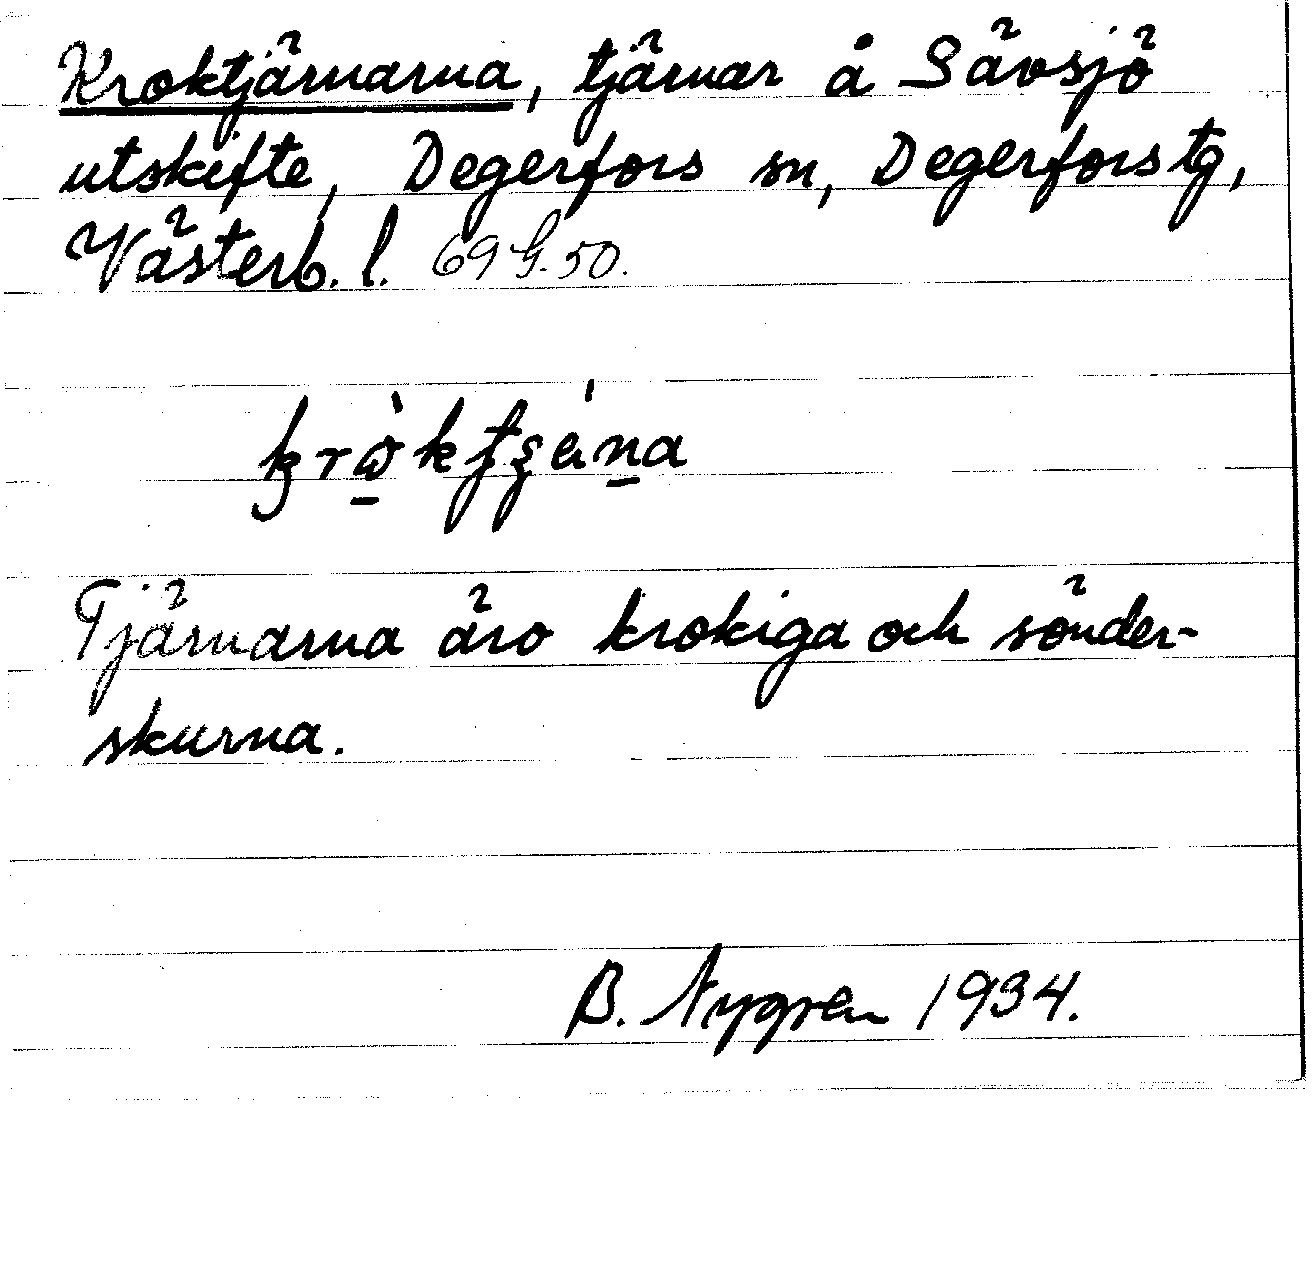 Kroktjärnarna, tjärnar å Sävsjö
utskifte, Degerfors sn, Degerfors tg,
Västerb. l. 69 G. 50.
Tjärnarna äro krokiga och sönder-
skurna.
B. Nygren 1934.